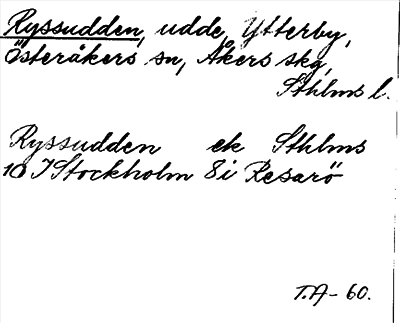 Ryssudden, udde, Ytterby,
Österåkers sn, Åkers skg,
Sthlms l.
Ryssudden ek Sthlms
10 I Stockholm 8i Resarö
T.A - 60.